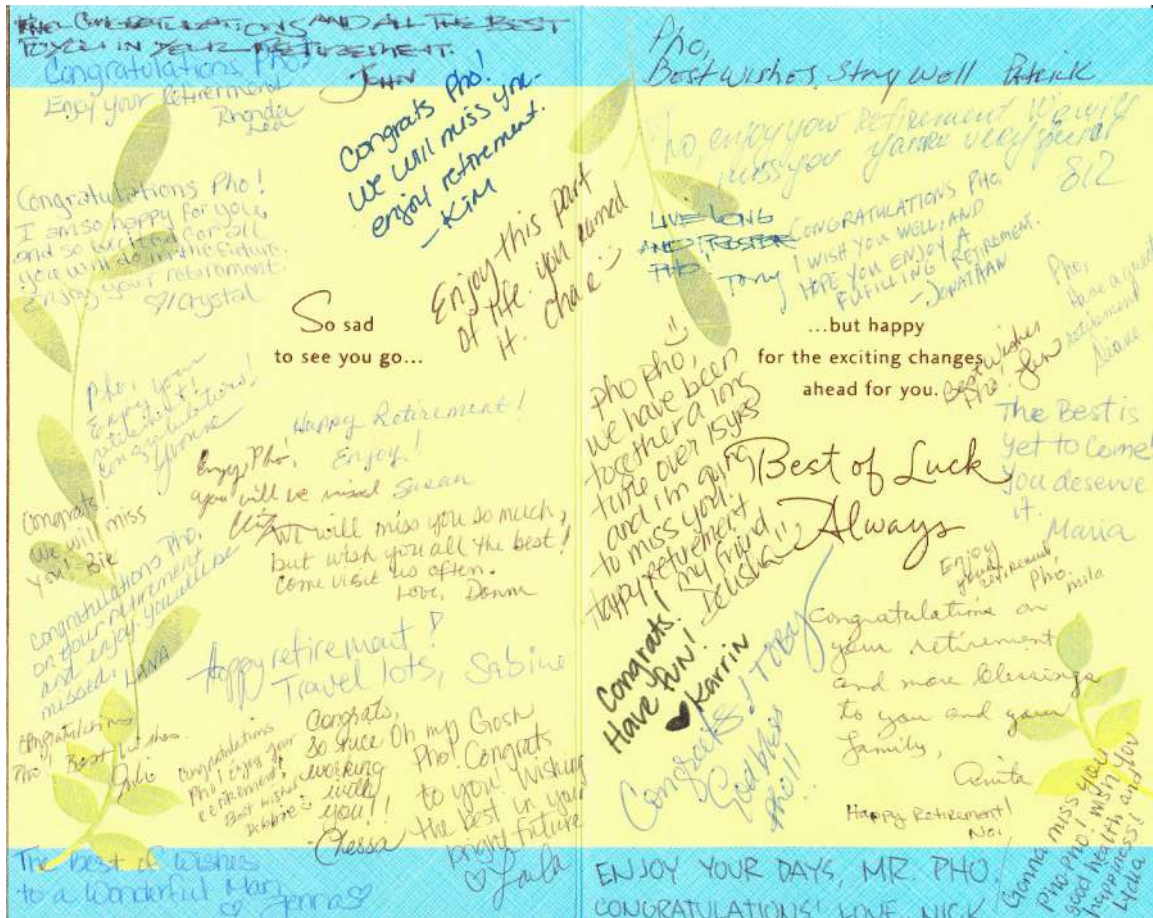 PHO, CONGRATULATIONS AND ALL THE BEST
TO YOU IN YOUR RETIREMENT.
JOHN
Congratulations Pho!
Enjoy your Retirement
Rhonda
Lea
Congrats Pho!
We will miss you.
enjoy retirement.
- KIM
Congratulations Pho!
I am so happy for you,
and so excited for all
you will do in the future.
Enjoy your retirement.
Crystal
Enjoy this part
of life. you earned
it.
So sad
to see you go...
Pho,
Enjoy your
retirement!
Congratulations!
Yvonne
Happy Retirement!
Enjoy!
Susan
Enjoy, Pho!
you will be missed
Congrats!
We will miss
you!
We will miss you so much,
but wish you all the best!
Come visit us often.
Love, Donna
Congratulations Pho,
on your retirement
and enjoy. you will be
missed. LANA
Happy retirement!
Travel lots, Sabine
Congratulations
Pho! Best Wishes.
Julie
Congratulations
Pho! Enjoy your
retirement!
Best wishes
Debbie
Congrats,
so nice
working
with
you!!
Chessa
Oh my Gosh
Pho! Congrats
to you! Wishing
the best in your
bright future
♡ Laila
The best of wishes
to a Wonderful Man
♡ Jenna ♡
Pho,
Best Wishes. Stay Well Patrick
Pho, enjoy your Retirement We will
miss you you are very special
LIVE LONG
AND PROSPER
PHO!
TONY
CONGRATULATIONS PHO.
I WISH YOU WELL, AND
HOPE YOU ENJOY A
FULFILLING RETIREMENT.
-JONATHAN
Pho,
Have a great
retirement
Diane
...but happy
for the exciting changes
ahead for you.
Best Wishes
Pho!
pho pho,
we have been
together a long
time over 15yrs
and i'm going
to miss you!
Happy retirement
my friend
Delisha!!
Best of Luck
Always
The Best is
yet to come!
You deserve
it.
Maria
Enjoy
your
retirement,
Pho.
mila
Congrats!
Have fun!
♥ Karrin
Congrats! TOBY
God bless
Pho!!
Congratulations on
your retirement
and more blessings
to you and your
family,
Anita
Happy Retirement!
NOI
ENJOY YOUR DAYS, MR. PHO.
CONGRATULATIONS! LOVE, NICK
Gonna miss you
Pho-Pho! I wish you
good health and
happiness!
Lydia